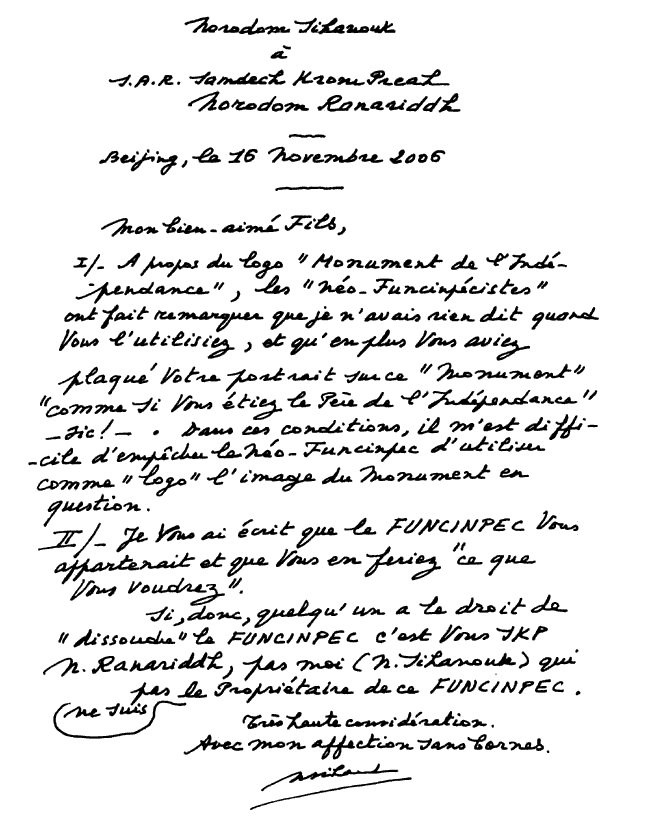 Norodom Sihanouk
à
S.A.R. Samdech Krom Preah
Norodom Ranariddh
Beijing, le 16 Novembre 2006
Mon bien-aimé Fils,
I/- A propos du logo "Monument de l'Indé-
-pendance", les "Néo-Funcinpécistes"
ont fait remarquer que je n'avais rien dit quand
Vous l'utilisiez, et qu'en plus Vous aviez
plaqué Votre portrait sur ce "Monument"
"comme si Vous étiez le Père de l'Indépendance"
- sic! - . Dans ces conditions, il m'est diffi-
-cile d'empêcher le Néo-Funcinpec d'utiliser
comme "logo" l'image du Monument en
question.
II/- Je Vous ai écrit que le FUNCINPEC Vous
appartenait et que Vous en feriez "ce que
Vous voudrez".
Si, donc, quelqu'un a le droit de
"dissoudre" le FUNCINPEC c'est Vous SKP
N. Ranariddh, pas moi (N. Sihanouk) qui
pas le Propriétaire de ce FUNCINPEC.
ne suis
Très haute considération.
Avec mon affection sans bornes.